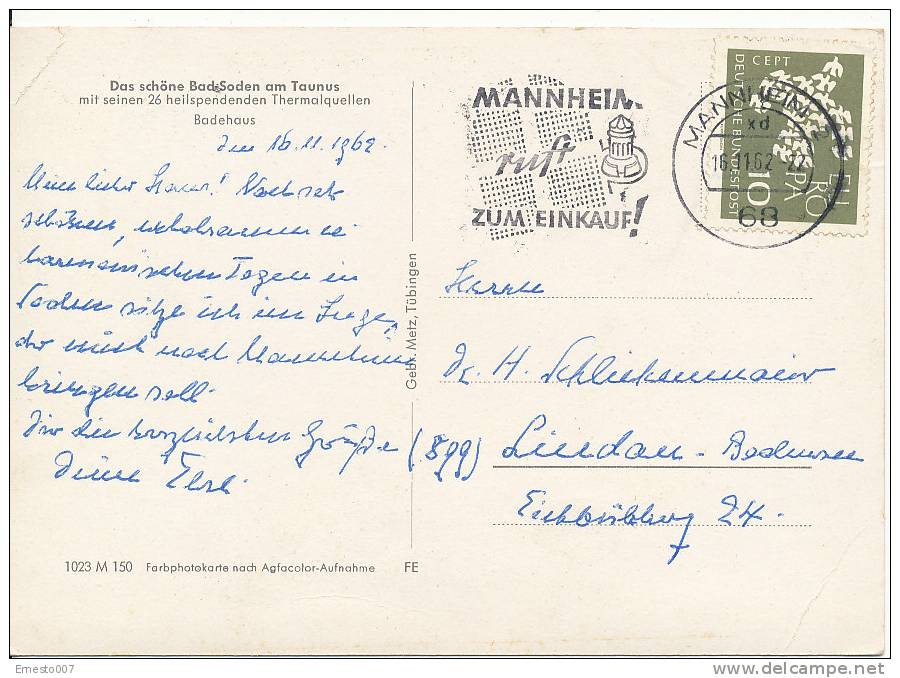 Das schöne Bad Soden am Taunus
mit seinen 26 heilspendenden Thermalquellen
Badehaus
den 16.11.1962.
Mein lieber ! Nach sehr
schönen,
harmonischen Tagen in
Soden sitze ich im Zuge,
der mich nach Mannheim
bringen soll.
Dir die herzlichsten Grüße
Deine
1023 M 150 Farbphotokarte nach Agfacolor-Aufnahme FE
Gebr. Metz, Tübingen
MANNHEIM
ruft
ZUM EINKAUF!
MANNHEIM 2
xd
16.11.62-22
68
CEPT
DEUTSCHE BUNDESPOST
10
EUROPA
Herrn
Dr. H. Schliekenmaier
(899) Lindau-Bodensee
24.
Ernesto007
www.delcampe.net